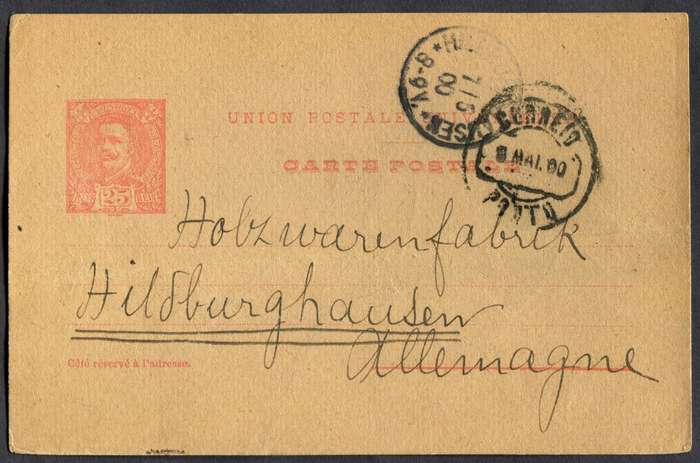 UNION POSTALE UNIVERSELLE
CARTE POSTALE
25
CORREIO
8 MAI.00
PORTO
8-9V.
Holzwarenfabrik
Hildburghausen
Allemagne
Côté réservé à l'adresse.